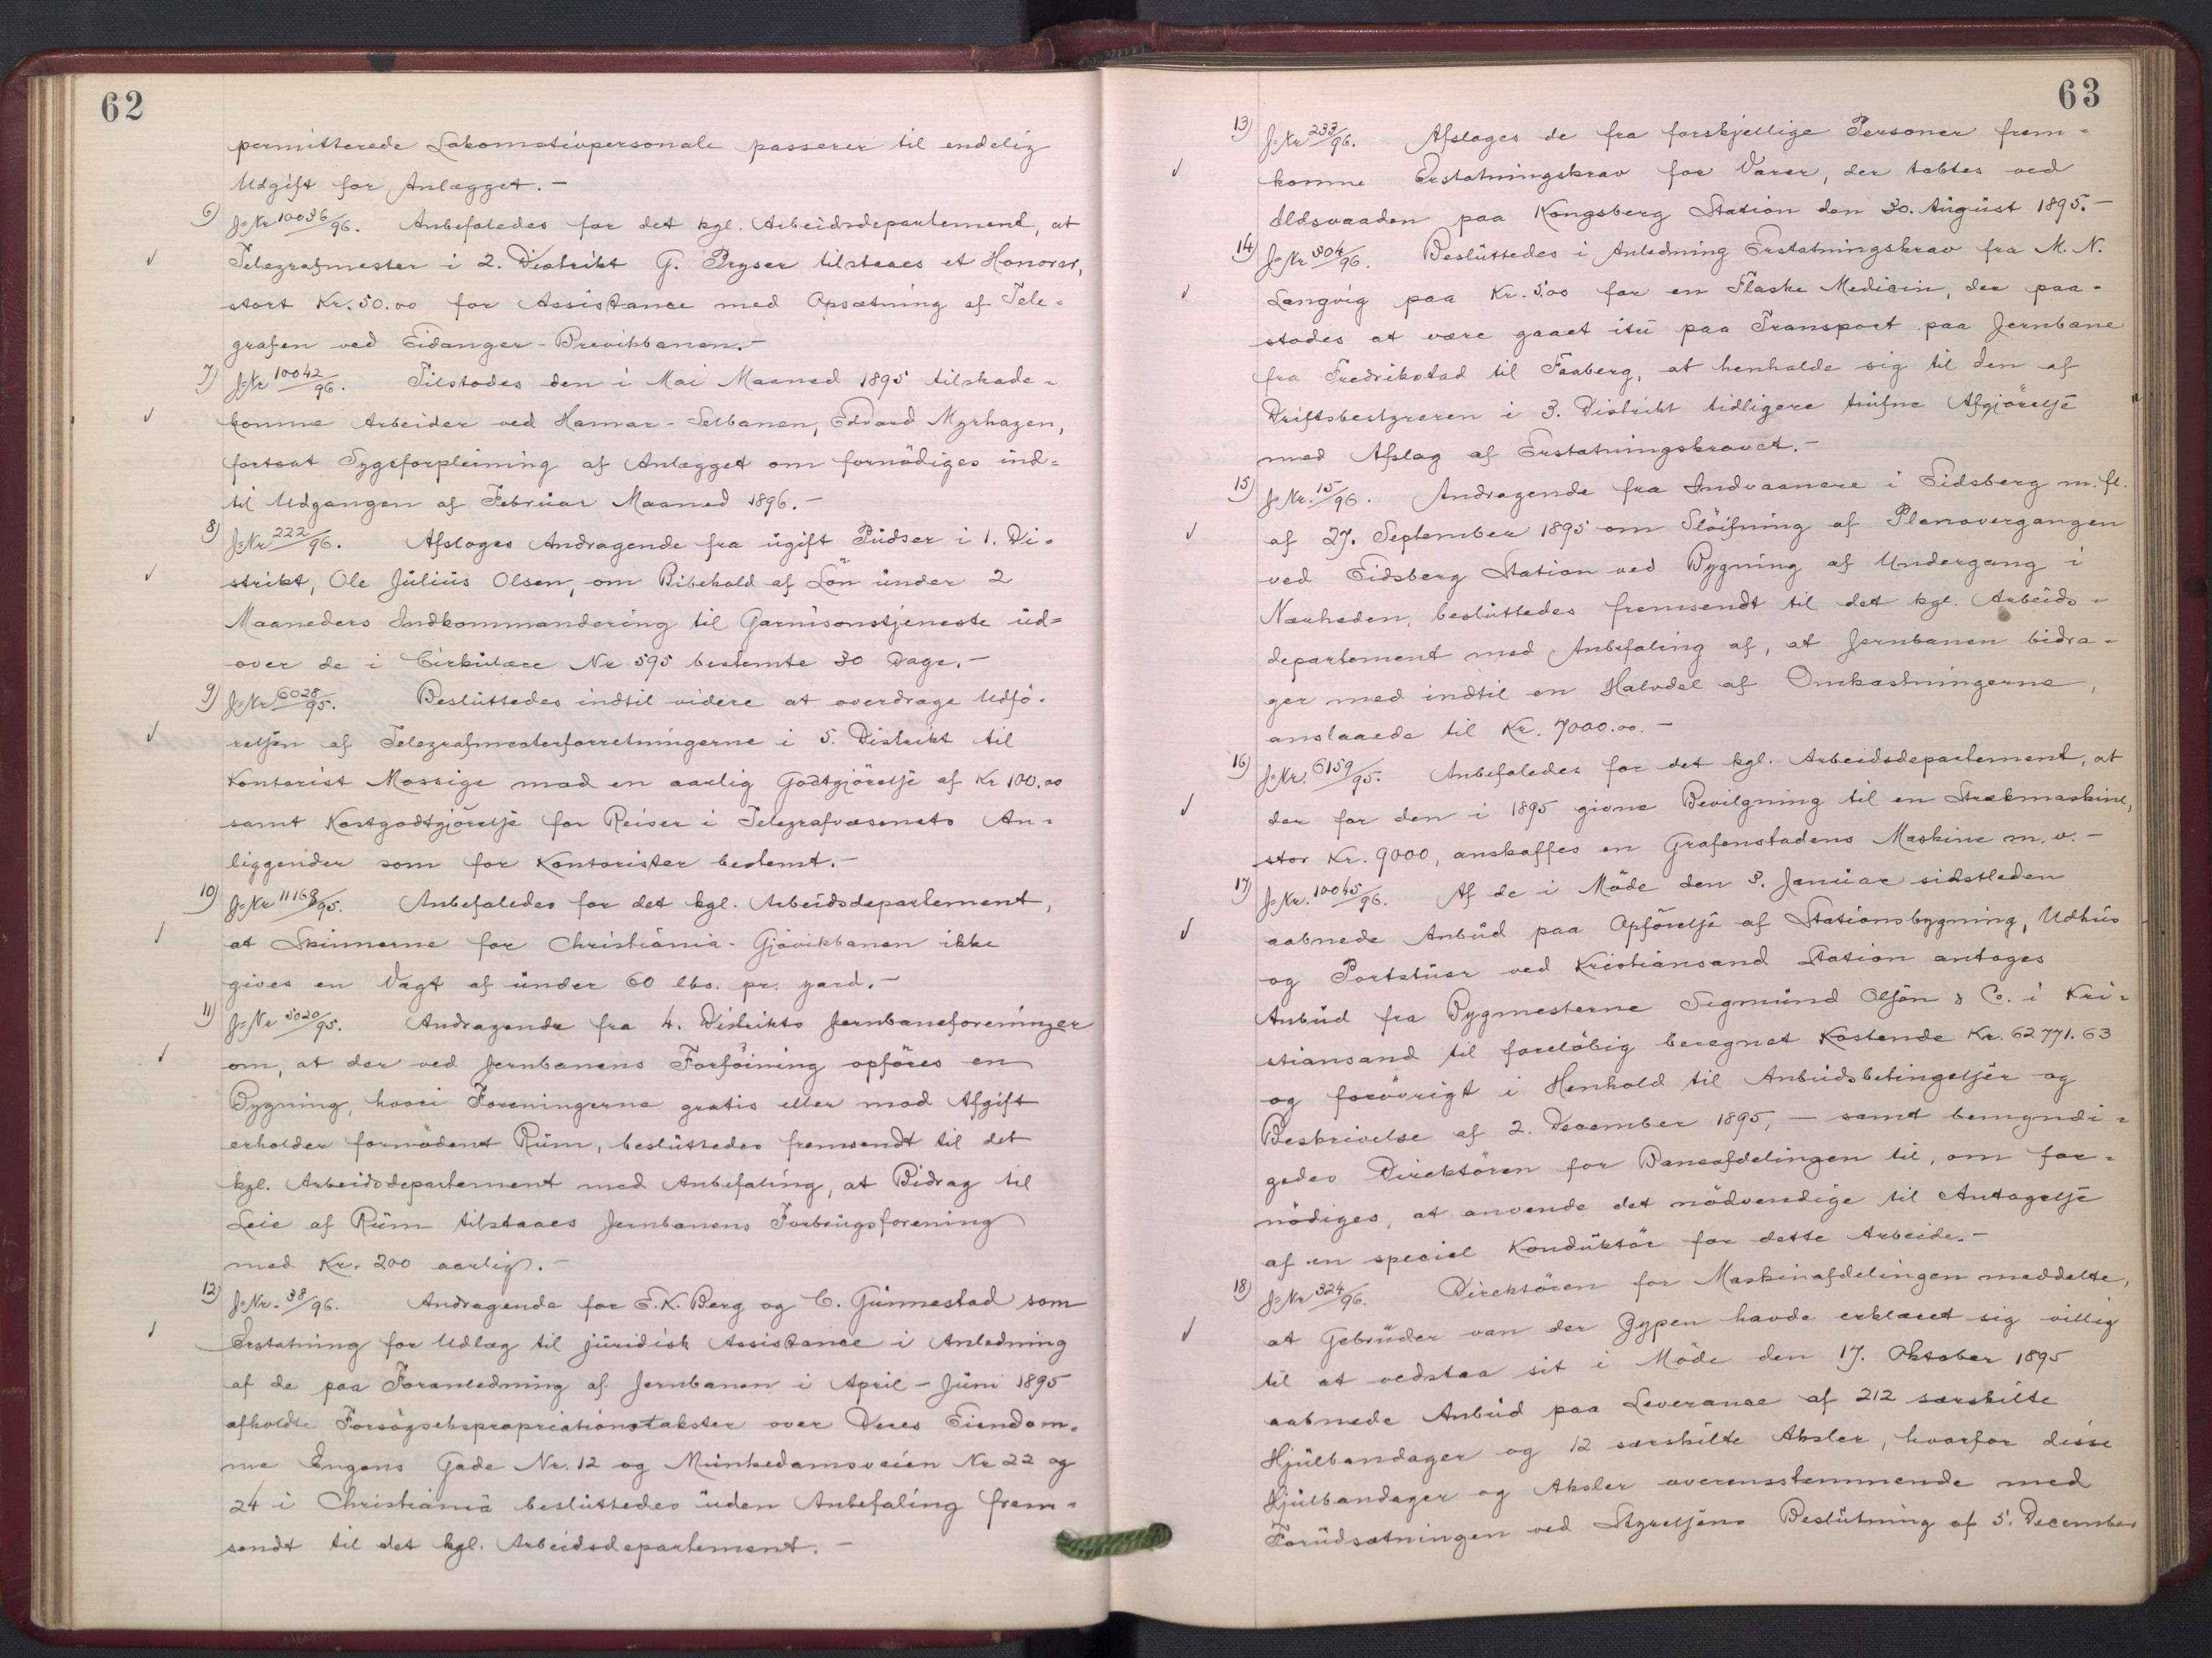 62
permitterede Lokomotivpersonale passerer til endelig
Udgift for Anlægget.-
6) J=Nr 10036/96. Anbefaledes for det kgl. Arbeidsdepartement, at
Telegrafmester i 2. Distrikt G. Pryser tilstaaes et Honorar,
stort Kr. 50.00 for Assistance med Opsætning af Tele=
grafen ved Eidanger-Brevikbanen.-
7) J=Nr 10042/96. Tilstodes den i Mai Maaned 1895 tilskade=
komne Arbeider ved Hamar-Selbanen, Edvard Myrhagen,
fortsat Sygeforpleining af Anlægget om fornödiges ind=
til Udgangen af Februar Maaned 1896.-
8) J=Nr 222/96. Afsloges Andragende fra ugift Pudser i 1. Di=
strikt, Ole Julius Olsen, om Bibehold af Lön under 2
Maaneders Indkommandering til Garnisonstjeneste ud=
over de i Cirkulære Nr 595 bestemte 30 Dage.-
9) J=Nr 6028/95. Besluttedes indtil videre at overdrage Udfö=
relsen af Telegrafmesterforretningerne i 5. Distrikt til
Kontorist Mossige mod en aarlig Godtgjörelse af Kr 100.00
samt Kostgodtgjörelse for Reiser i Telegrafvæsenets An=
liggender som for Kontorister bestemt.-
10) J=Nr 11168/95. Anbefaledes for det kgl. Arbeidsdepartement,
at Skinnerne for Christiania-Gjövikbanen ikke
gives en Vægt af under 60 lbs. pr. yard.-
11) J=Nr 5020/95. Andragende fra 4. Distrikts Jernbaneforeninger
om, at der ved Jernbanens Forföining opföres en
Bygning, hvori Foreningerne gratis eller mod Afgift
erholder fornödent Rum, besluttedes fremsendt til det
kgl. Arbeidsdepartement med Anbefaling, at Bidrag til
Leie af Rum tilstaaes Jernbanens Forbrugsforening
med Kr. 200 aarlig.-
12) J=Nr. 38/96. Andragende for E.K. Berg og C. Gunnestad som
Erstatning for Udlæg til juridisk Assistance i Anledning
af de paa Foranledning af Jernbanen i April-Juni 1895
afholdte Forsögsekspropriationstakster over Deres Eiendom=
me Engens Gade Nr. 12 og Munkedamsveien Nr 22 og
24 i Christiania besluttedes uden Anbefaling frem=
sendt til det kgl. Arbeidsdepartement.-
63
13) J=Nr 233/96. Afsloges de fra forskjellige Personer frem=
komne Erstatningskrav for Varer, der tabtes ved
Ildsvaaden paa Kongsberg Station den 30. August 1895.-
14) J=Nr 304/96. Besluttedes i Anledning Erstatningskrav fra M. N.
Langvig paa Kr. 5.00 for en Flaske Medicin, der paa=
stodes at være gaaet itu paa Transport paa Jernbane
fra Fredrikstad til Faaberg, at henholde sig til den af
Driftsbestyreren i 3. Distrikt tidligere trufne Afgjörelse
med Afslag af Erstatningskravet.-
15) J=Nr. 15/96. Andragende fra Indvaanere i Eidsberg m. fl.
af 27. September 1895 om Slöifning af Planovergangen
ved Eidsberg Station ved Bygning af Undergang i
Nærheden, besluttedes fremsendt til det kgl. Arbeids=
departement med Anbefaling af, at Jernbanen bidra=
ger med indtil en Halvdel af Omkostningerne,
anslaaede til Kr. 7000.00.-
16) J=Nr. 6159/95. Anbefaledes for det kgl. Arbeidsdepartement, at
der for den i 1895 givne Bevilgning til en Strækmaskine,
stor Kr. 9000, anskaffes en Grafenstadens Maskine m. v.-
17) J=Nr. 10045/96. Af de i Möde den 3. Januar sidstleden
aabnede Anbud paa Opförelse af Stationsbygning, Udhus
og Portstuer ved Kristiansand Station antoges
Anbud fra Bygmesterne Sigmund Olsön & Co. i Kri=
stiansand til foreløbig beregnet Kostende Kr. 62771.63
og forövrigt i Henhold til Anbudsbetingelser og
Beskrivelse af 2. December 1895, - samt bemyndi=
gedes Direktören for Baneafdelingen til, om for=
nödiges, at anvende det nödvendige til Antagelse
af en speciel Konduktör for dette Arbeide.-
18) J=Nr 324/96. Direktören for Maskinafdelingen meddelte,
at Gebrüder van der Zypen havde erklæret sig villig
til at vedstaa sit i Möde den 17. Oktober 1895
aabnede Anbud paa Leverance af 212 særskilte
Hjulbandager og 12 særskilte Aksler, hvorfor disse
Hjulbandager og Aksler overensstemmende med
Forudsætningen ved Styrelsens Beslutning af 5. December